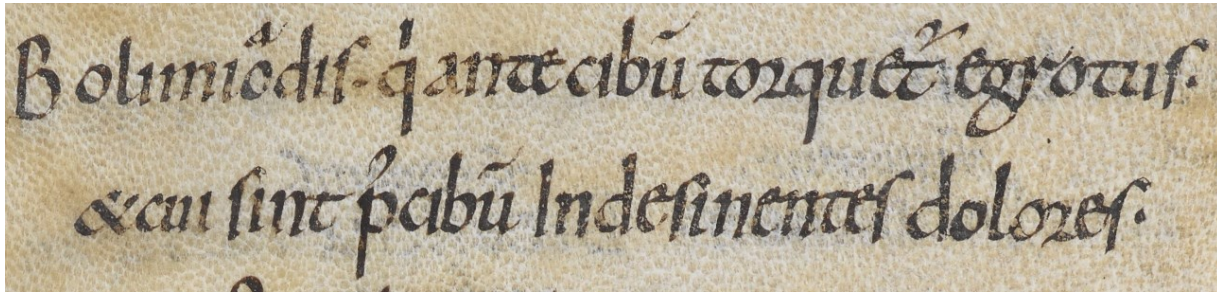 Bolimicͣdis· qͥ ante cibū torquet᷑ egrotus·
& cui sint p᷑ cibū Indesinentes dolores·